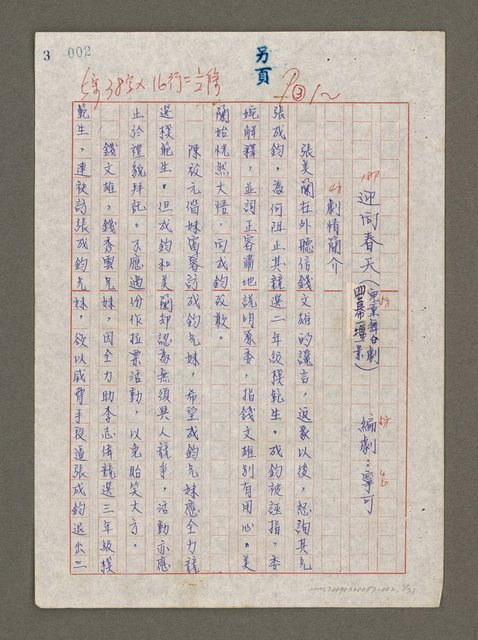 3
002
另頁
迎向春天（東京舞台劇
四幕壹景）
編劇：寧可
劇情簡介
張美蘭在外聽信錢文雄的讒言，返家以後，怒詢其兄
張成鈞，為何阻止其競選二年級模範生。成鈞被誣指，委
婉解釋，並詞正容肅地說明原委，指錢文雄別有用心。美
蘭始恍然大悟，向成鈞致歉。
陳啟元偕妹雪蓉訪成鈞兄妹，希望成鈞兄妹應全力競
選模範生。但成鈞和美蘭却認為無須與人競爭，活動亦應
止於禮貌拜託。不應過份作拉票活動，以免貽笑大方。
錢文雄，錢秀雲兄妹，因全力助李志偉競選三年級模
範生，連袂訪張成鈞兄妹，欲以威脅手段逼張成鈞退出三